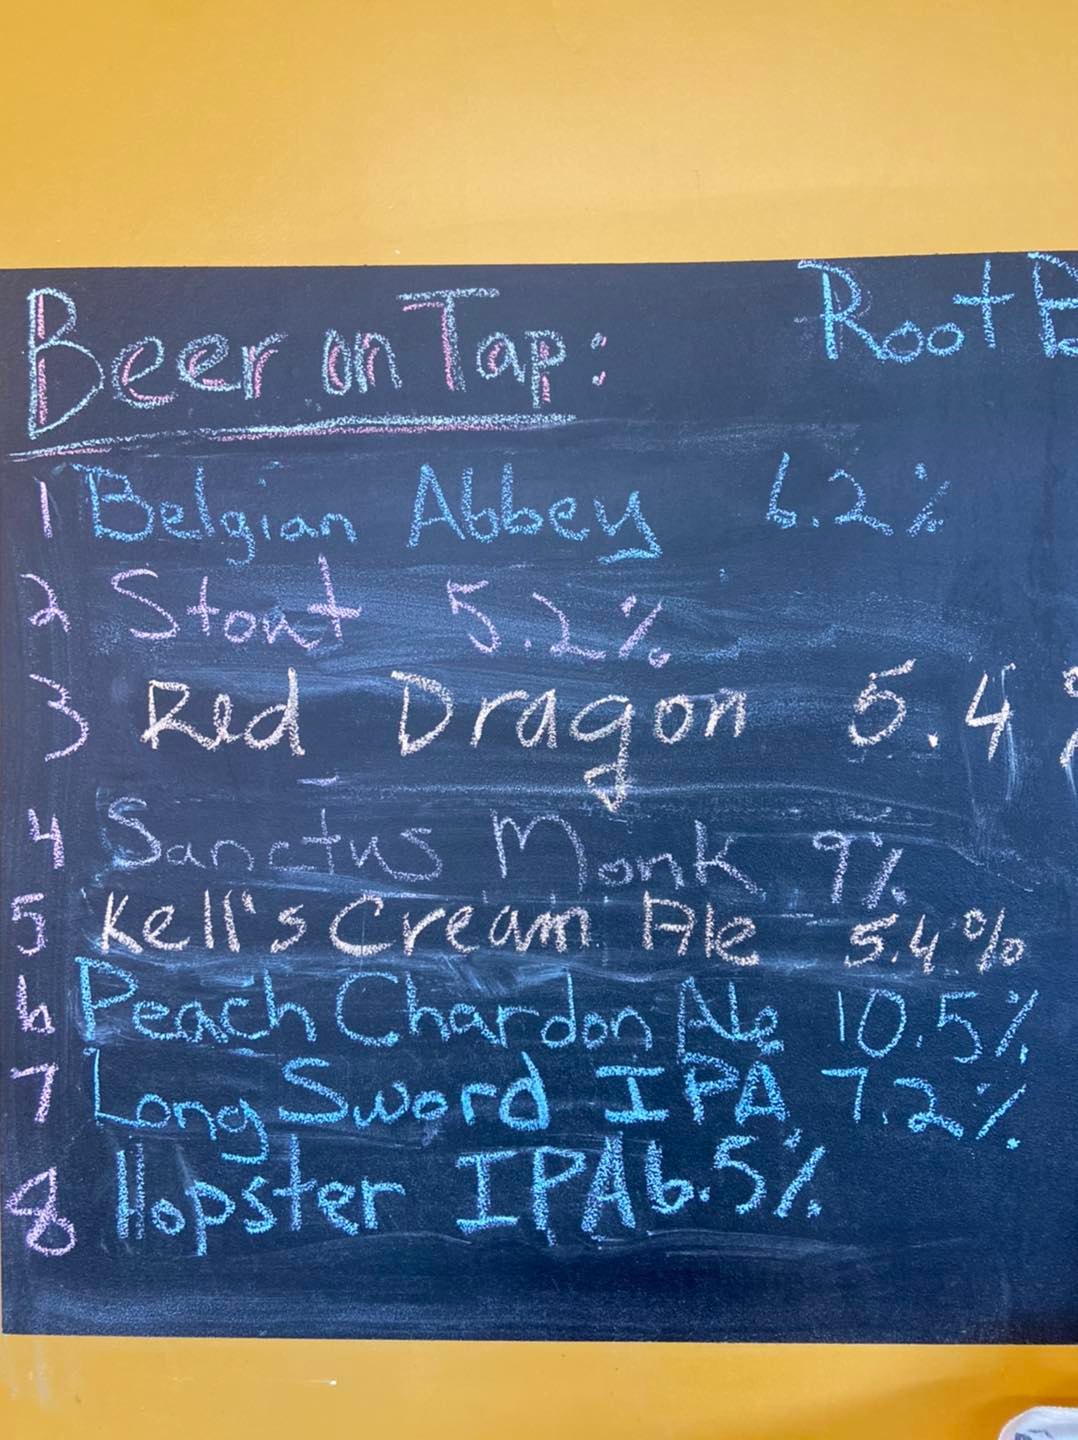 Beer on Tap:
Root B
1 Belgian Abbey 6.2%
2 Stout 5.2%
3 Red Dragon 5.4%
4 Sanctus Monk 9%
5 Kell's Cream Ale 5.4%
6 Peach Chardon Ale 10.5%
7 Long Sword IPA 7.2%
8 Hopster IPA 6.5%